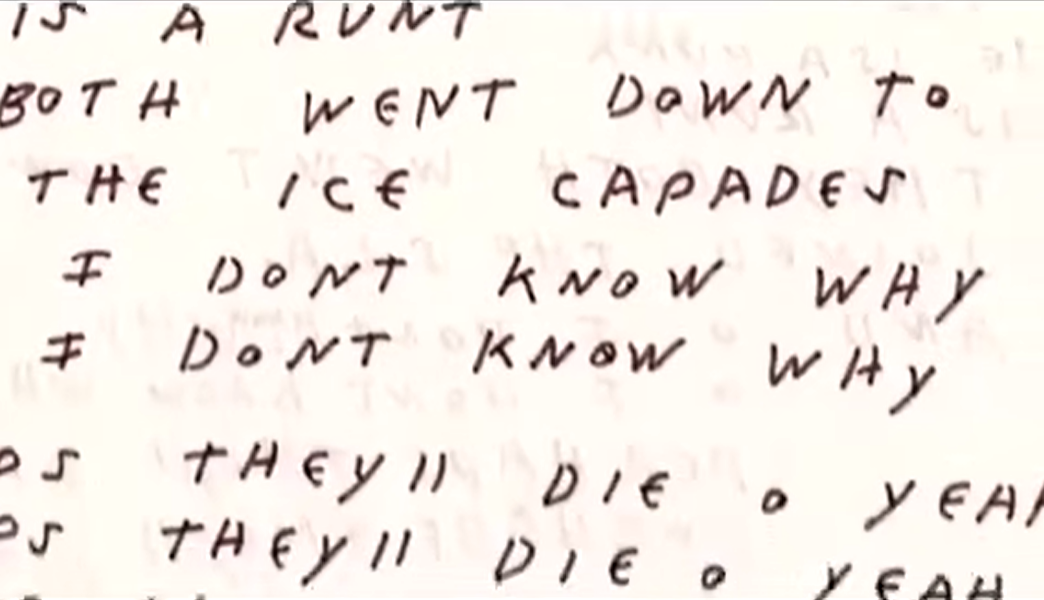 IS A RUNT
BOTH WENT DOWN TO
THE ICE CAPADES
I DONT KNOW WHY
I DONT KNOW WHY
THEYll DIE o YEAH
THEYll DIE o YEAH